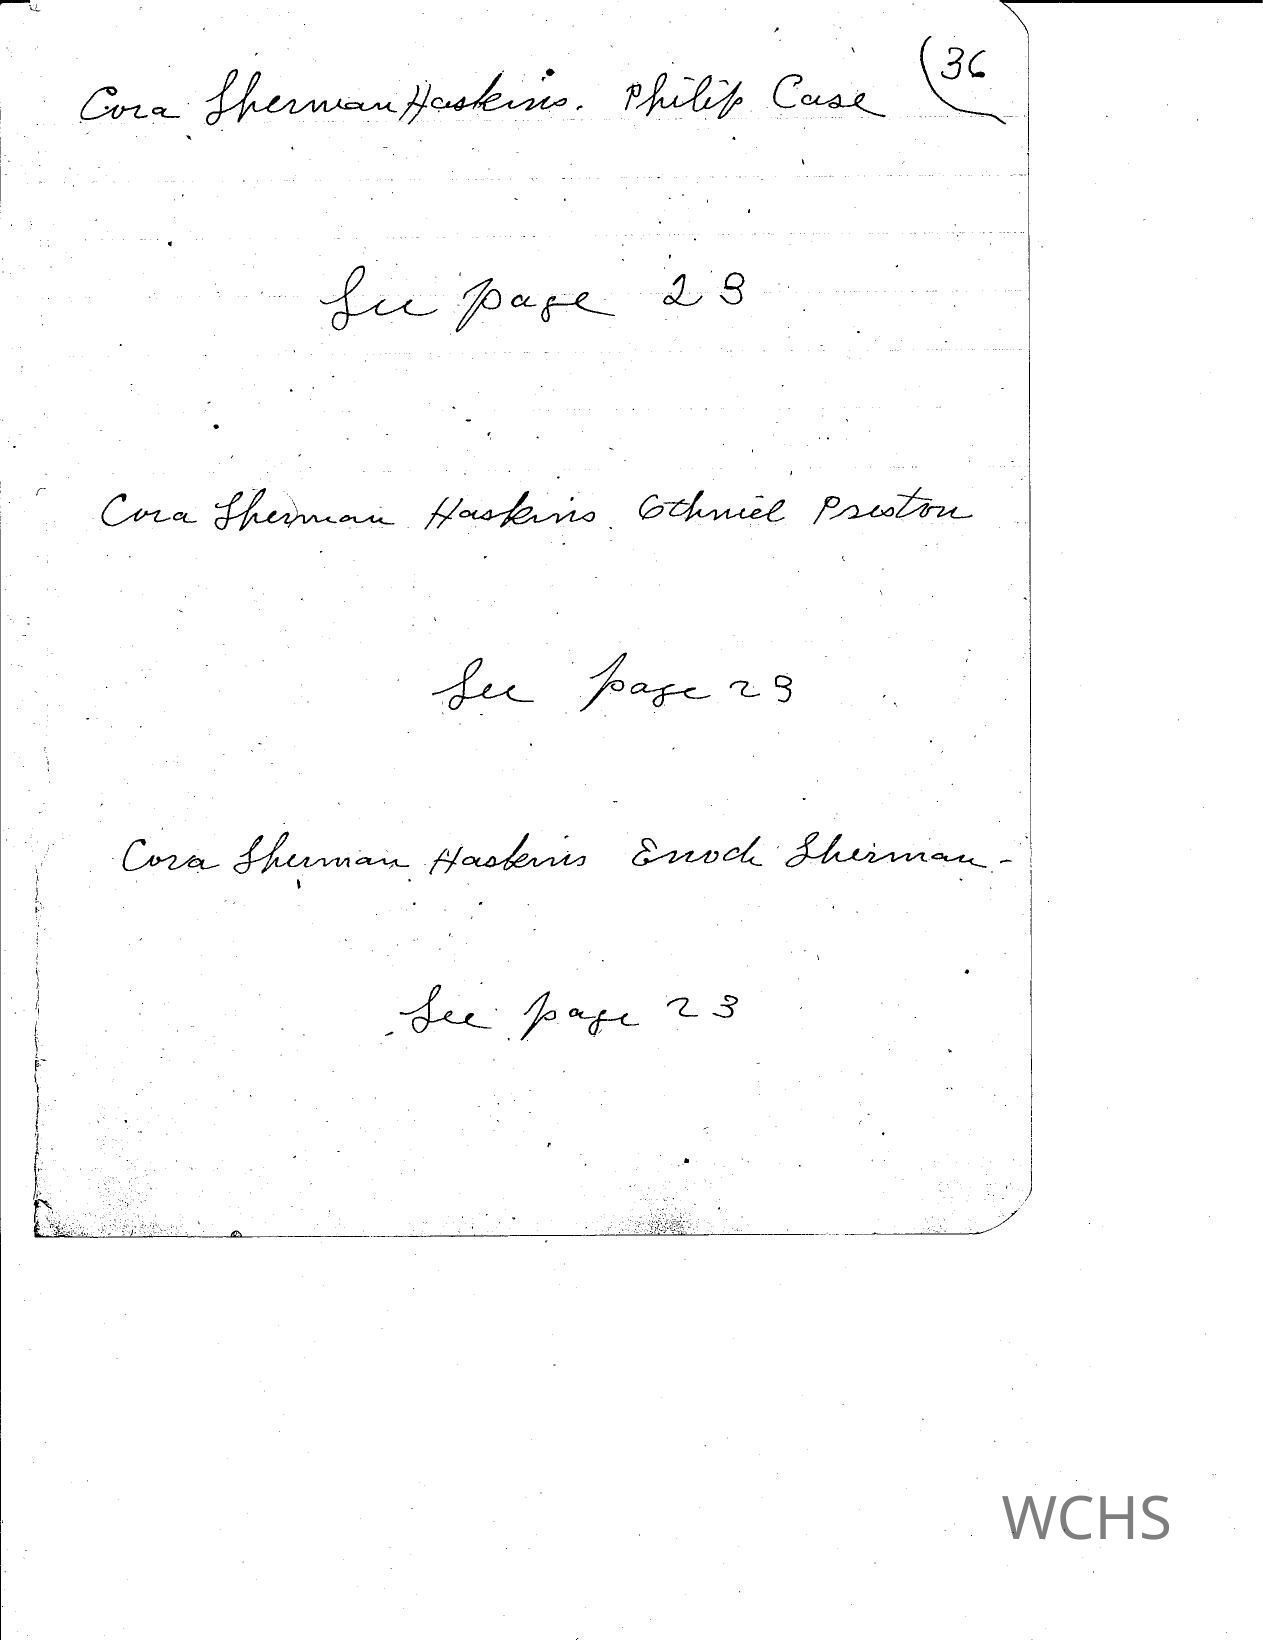 36
Cora Sherman Haskins. Philip Case
See page 23
Cora Sherman Haskins. Othniel Preston
See page 23
Cora Sherman Haskins Enoch Sherman -
See page 23
WCHS